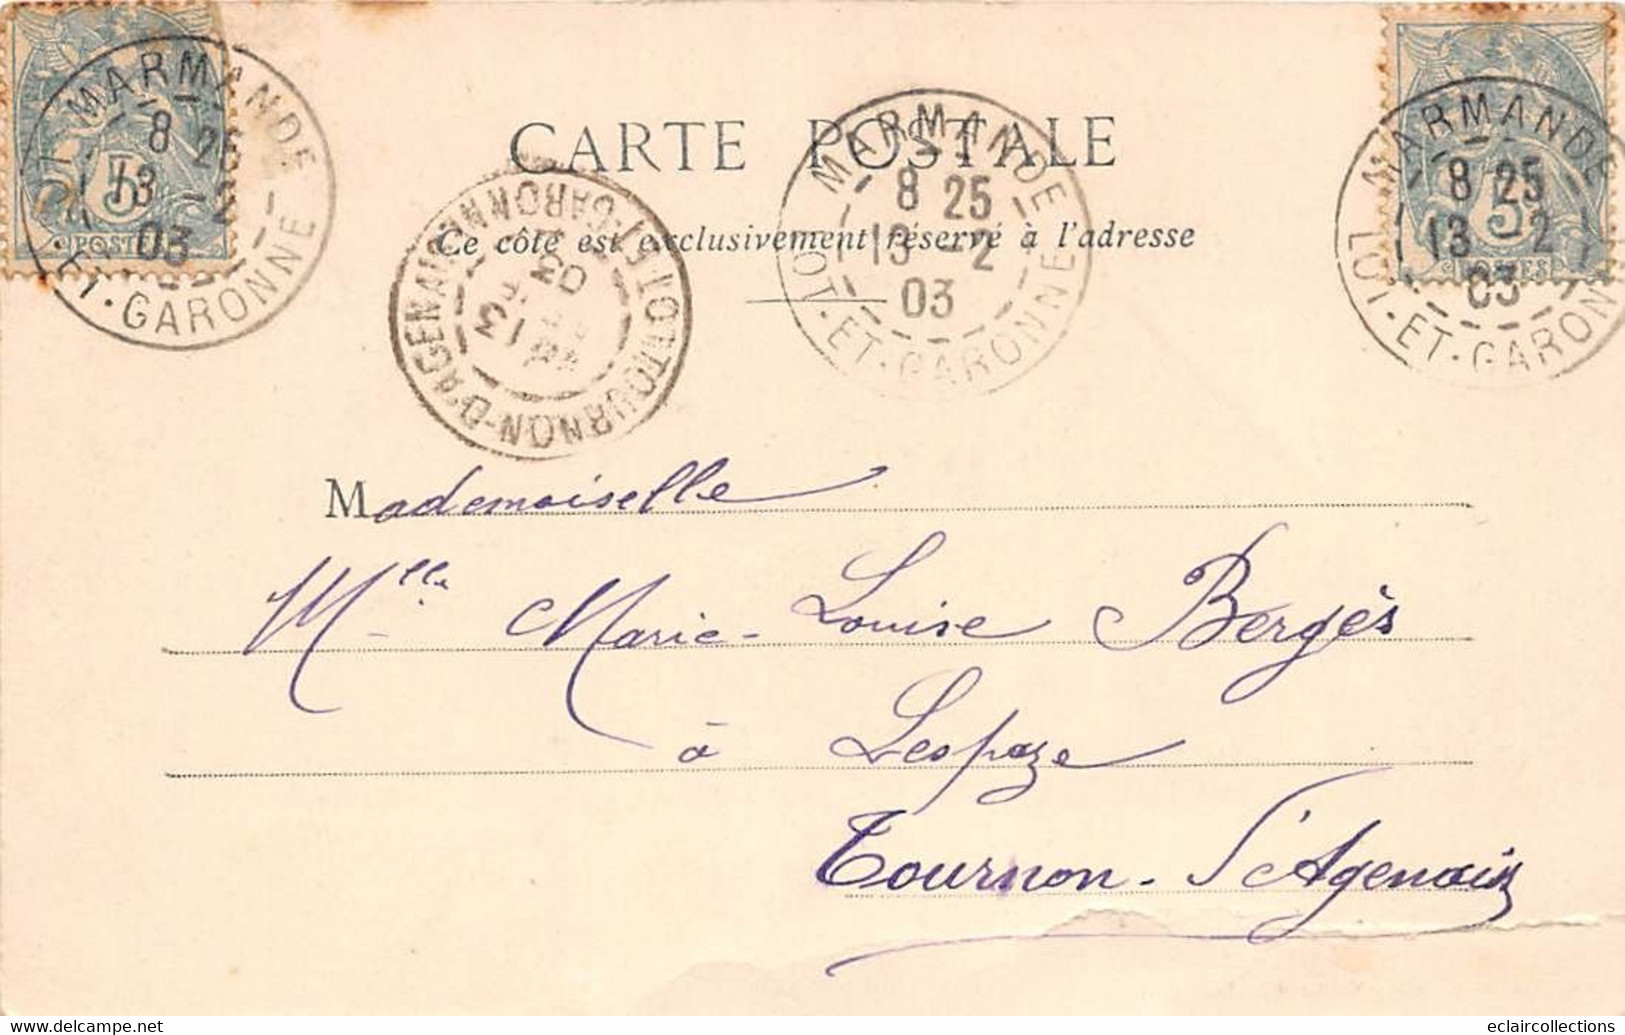 MARMANDE
8 25
13 -2
03
LOT-ET-GARONNE
5
POSTES
CARTE POSTALE
Ce côté est exclusivement réservé à l'adresse
MARMANDE
8 25
13 -2
03
LOT-ET-GARONNE
MARMANDE
8 25
13 -2
03
LOT-ET-GARONNE
5
POSTES
TOURNON-D'AGENAIS
LOT-ET-GARONNE
13
03
Mademoiselle
Mlle Marie-Louise Bergès
à Lespaze
Tournon-d'Agenais
delcampe.net
eclaircollections